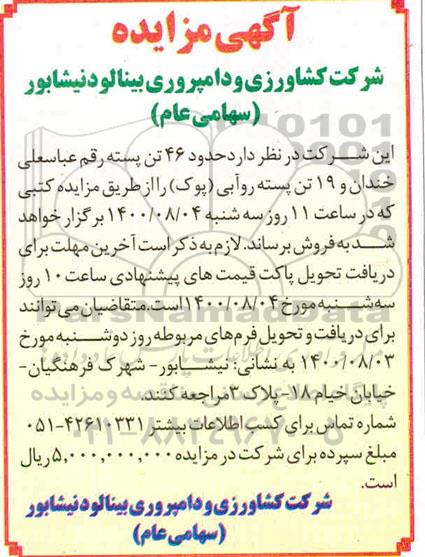 آگهی مزایده
شرکت کشاورزی و دامپروری بینالود نیشابور
(سهامی عام)
این شرکت در نظر دارد حدود ۴۶ تن پسته رقم عباسعلی
خندان و ۱۹ تن پسته روآبی (پوک) را از طریق مزایده کتبی
که در ساعت ۱۱ روز سه شنبه ۱۴۰۰/۰۸/۰۴ برگزار خواهد
شد به فروش برساند. لازم به ذکر است آخرین مهلت برای
دریافت تحویل پاکت قیمت های پیشنهادی ساعت ۱۰ روز
سه شنبه مورخ ۱۴۰۰/۰۸/۰۴ است. متقاضیان می توانند
برای دریافت و تحویل فرم های مربوطه روز دوشنبه مورخ
۱۴۰۰/۰۸/۰۳ به نشانی: نیشابور- شهرک فرهنگیان-
خیابان خیام ۱۸- پلاک ۳ مراجعه کنند.
شماره تماس برای کسب اطلاعات بیشتر ۴۲۶۱۰۳۳۱-۰۵۱
مبلغ سپرده برای شرکت در مزایده ۵,۰۰۰,۰۰۰,۰۰۰ ریال
است.
شرکت کشاورزی و دامپروری بینالود نیشابور
(سهامی عام)